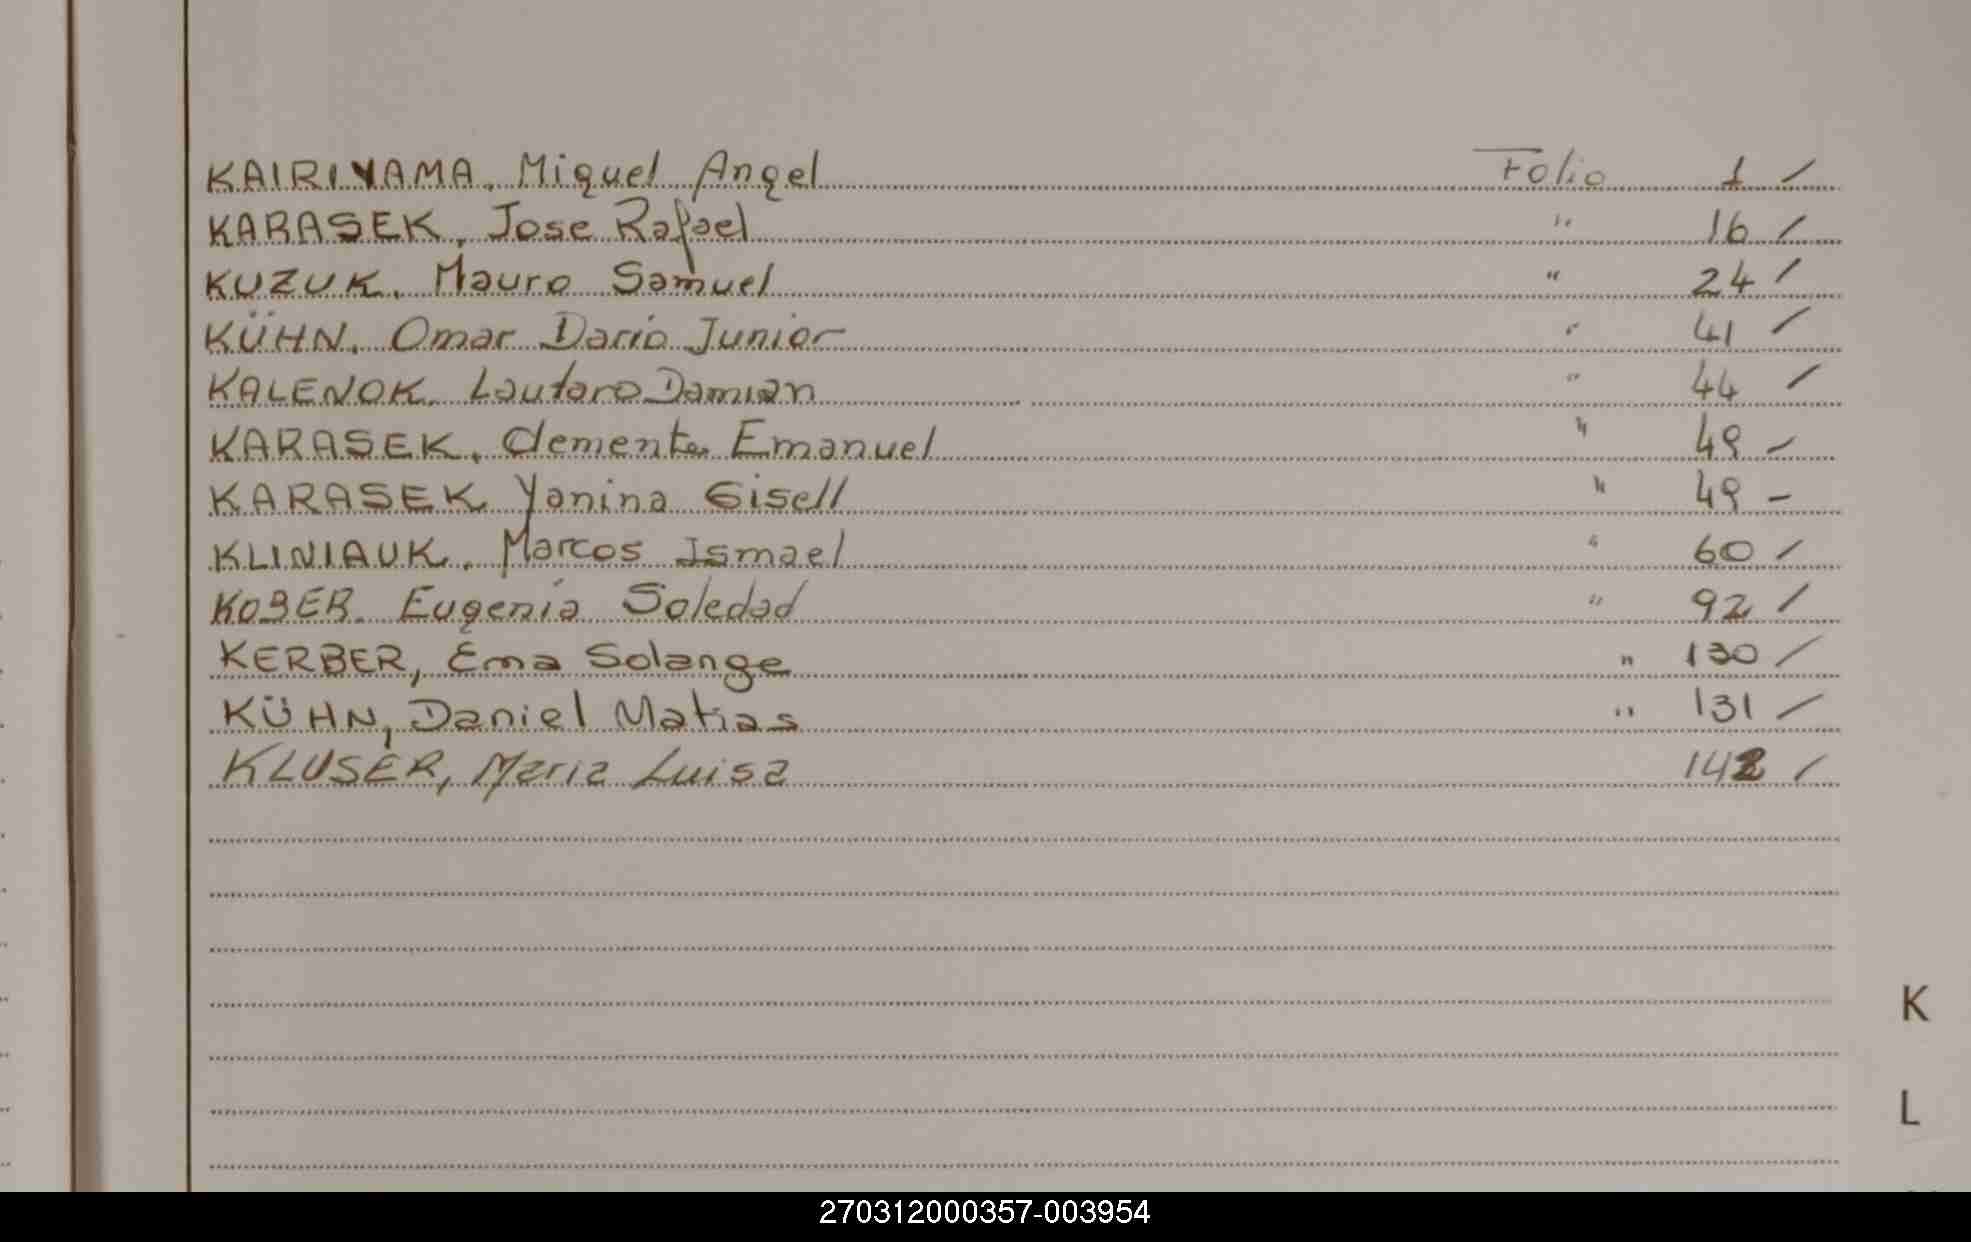 KAIRIYAMA, Miguel Angel Folio 1 /
KARASEK, Jose Rafael " 16 /
KUZUK, Mauro Samuel " 24 /
KÜHN, Omar Darío Junior " 41 /
KALENOK, Lautaro Damian " 44 /
KARASEK, Clemente Emanuel " 49 -
KARASEK Yanina Gisell " 49 -
KLINIAUK, Marcos Ismael " 60 /
KOBER, Eugenia Soledad " 92 /
KERBER, Ema Solange " 130 /
KÜHN, Daniel Matias " 131 /
KLUSER, Maria Luisa 142 /
K
L
270312000357-003954